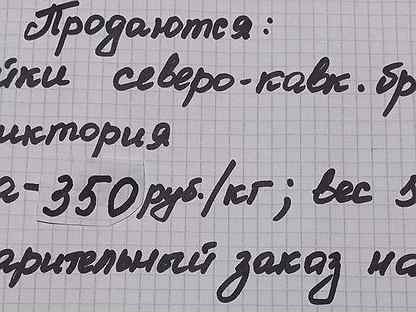 Продаются:
йки северо-кавк. бр
иктория
а-350 руб./кг; вес 5
арительный заказ на